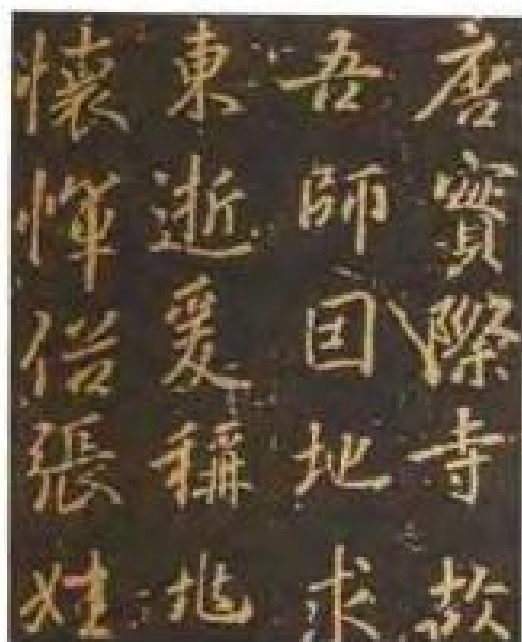 唐實際寺故
吾師因地求
東逝爰稱
懷惲俗張姓